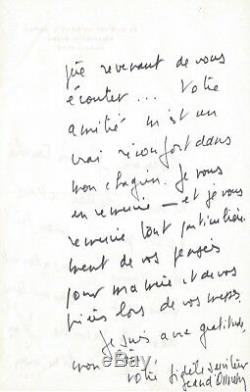 revenant de vous
écouter... Votre
amitié m'est un
vrai réconfort dans
mon chagrin. Je vous
en remercie — et je vous
remercie tout particulière
ment de vos pensées
pour ma mère et de vos
prières lors de vos messes.
Je suis avec gratitude,
mon Père,
votre fidèle